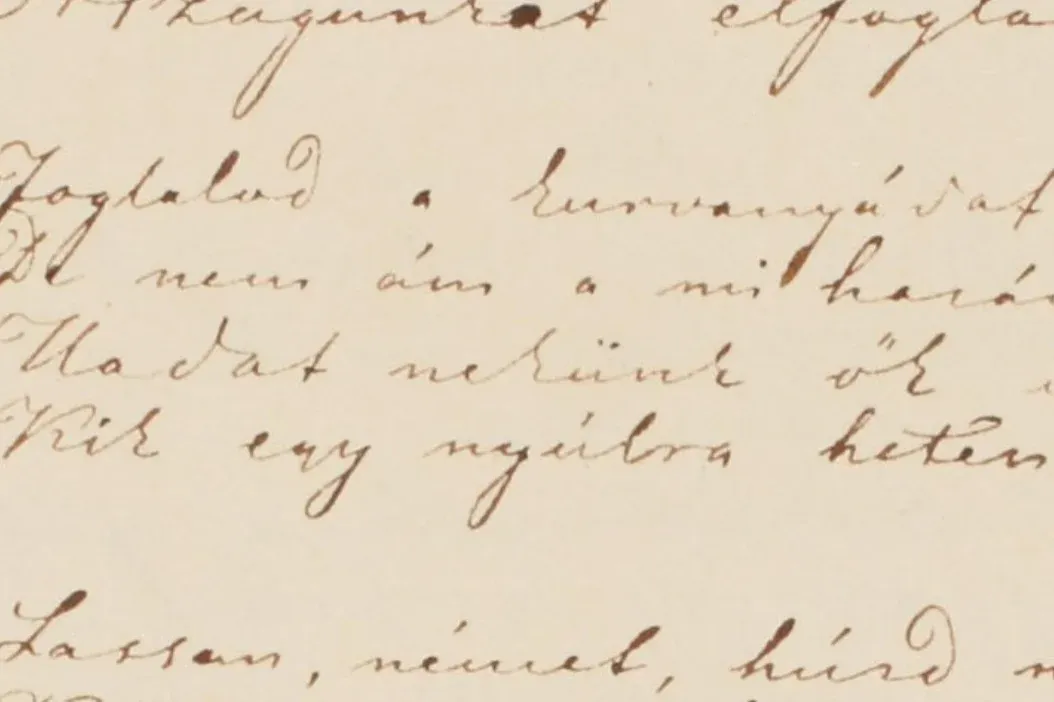 Országunkat elfogla
Foglalod a kurvanyádat
De nem ám a mi hazán
Hadat nekünk ők
Kik egy nyúlra heten
Lassan, német, húzd